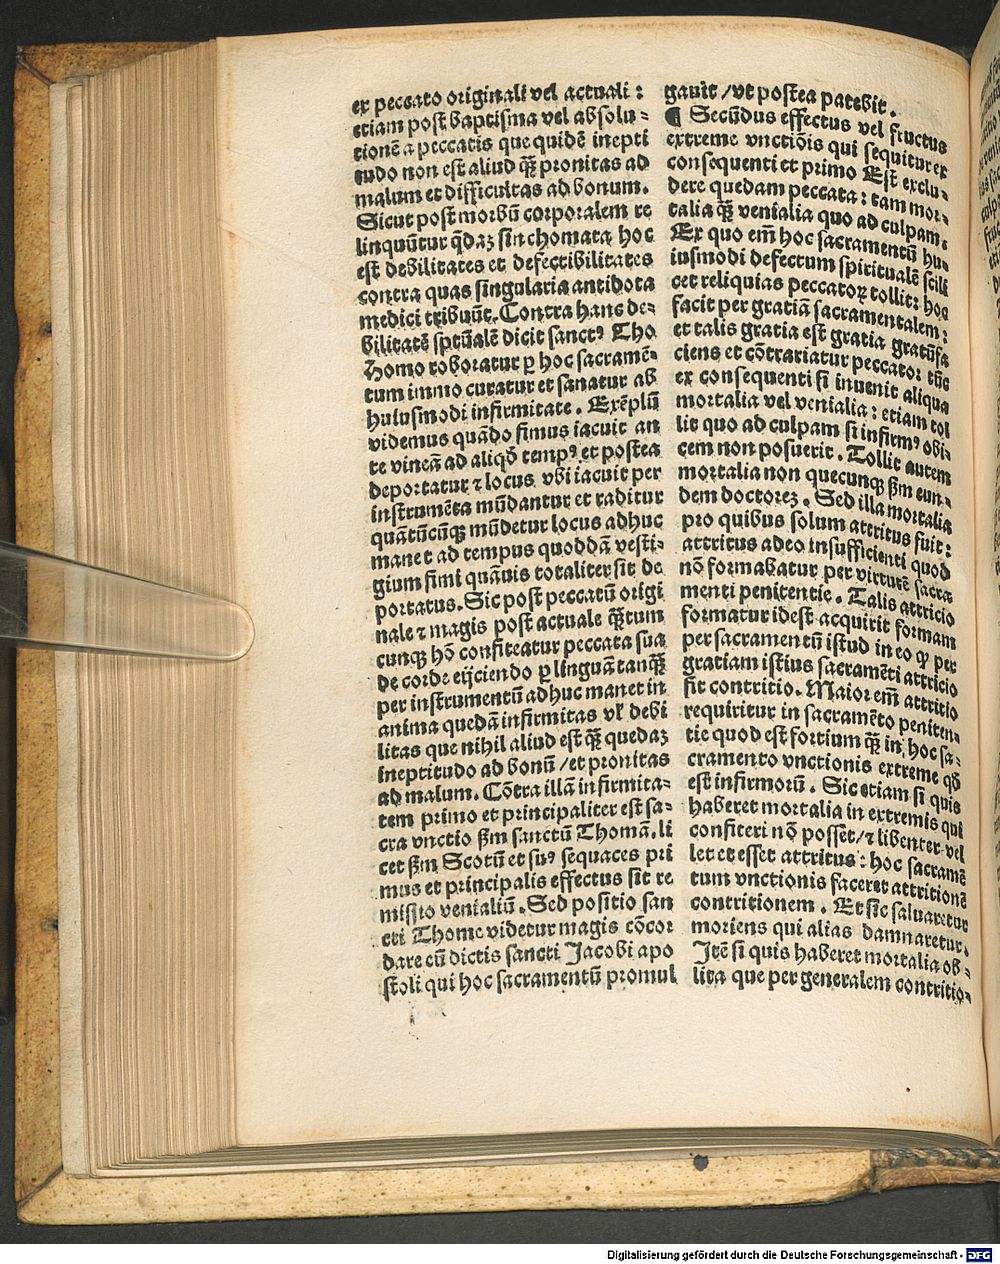 ex peccato originali vel actuali :
etiam post baptisma vel absolu-
tionē a peccatis que quidē inepti
tudo non est aliud qȝ̄ pronitas ad
malum et difficultas ad bonum.
Sicut post morbū corporalem re
linquūtur qdaȝ sinchomata hoc
est debilitates et defectibilitates
contra quas singularia antidota
medici tribuūt. Contra hanc de-
bilitatē spūalē dicit sanctꝰ Tho
Homo roboratur ꝑ hoc sacramē-
tum immo curatur et sanatur ab
huiusmodi infirmitate. Exēplū
videmus quādo fimus iacuit an
te vineā ad aliqđ tempꝰ et postea
deportatur ⁊ locus vbi iacuit per
instrumēta mūdantur et raditur
quātūcūqꝫ mūdetur locus adhuc
manet ad tempus quoddā vesti-
gium fimi quāuis totaliter sit de
portatus. Sic post peccatū origi
nale ⁊ magis post actuale qȝ̄tum
cunqꝫ hō confiteatur peccata sua
de corde eijciendo ꝑ linguā tanqȝ̄
per instrumentū adhuc manet in
anima quedā infirmitas vl̕ debi
litas que nihil aliud est qȝ̄ quedaȝ
ineptitudo ad bonū / et pronitas
ad malum. Cōtra illā infirmita-
tem primo et principaliter est sa-
cra vnctio ßm sanctū Thomā. li
cet ßm Scotū et suꝰ sequaces pri
mus et principalis effectus sit re
missio venialiū. Sed positio san
cti Thome videtur magis cōcor
dare cū dictis sancti Jacobi apo
stoli qui hoc sacramentū promul
gauit / vt postea patebit.
¶ Secūdus effectus vel fructus
extreme vnctiōis qui sequitur ex
consequenti et primo Est exclu-
dere quedam peccata : tam mor-
talia qȝ̄ venialia quo ad culpam.
Ex quo em̄ hoc sacramentū hu-
iusmodi defectum spiritualē scili
cet reliquias peccatoꝝ tollit: hoc
facit per gratiā sacramentalem :
et talis gratia est gratia gratūfa
ciens et cōtrariatur peccato: tūc
ex consequenti si inuenit aliqua
mortalia vel venialia : etiam tol
lit quo ad culpam si infirmꝰ obi-
cem non posuerit. Tollit autem
mortalia non quecunqꝫ ßm eun-
dem doctoreȝ. Sed illa mortalia
pro quibus solum attritus fuit :
attritus adeo insufficienti quod
nō formabatur per virtutē sacra
menti penitentie. Talis attricio
formatur idest acquirit formam
per sacramentū istud in eo ꝙ per
gratiam istius sacramēti attricio
fit contritio. Maior em̄ attritio
requiritur in sacramēto peniten-
tie quod est fortium qȝ̄ in hoc sa-
cramento vnctionis extreme qđ
est infirmorū. Sic etiam si quis
haberet mortalia in extremis qui
confiteri nō posset / ⁊ libenter vel
let et esset attritus : hoc sacramē
tum vnctionis faceret attritionē
contritionem. Et sic saluaretur
moriens qui alias damnaretur.
Itē si quis haberet mortalia ob-
lita que per generalem contritio-
Digitalisierung gefördert durch die Deutsche Forschungsgemeinschaft - DFG